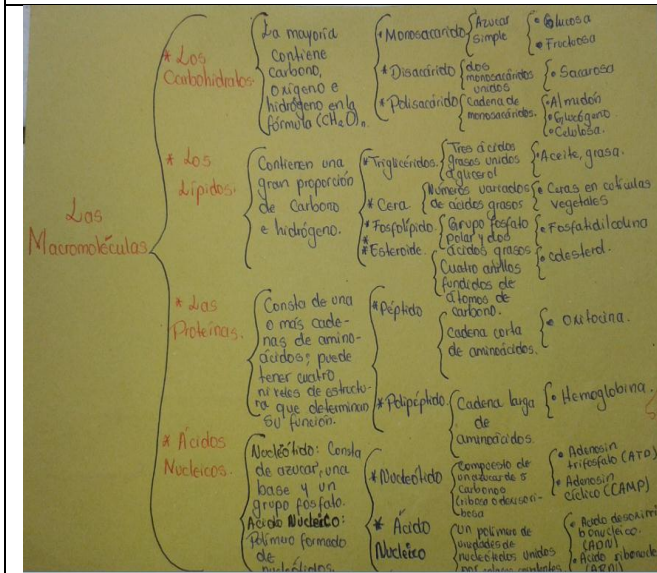 Las
Macromoléculas
* Los
Carbohidratos.
La mayoría
contiene
carbono,
oxígeno e
hidrógeno en la
fórmula (CH2O)n.
* Monosacárido
Azucar
simple
• Glucosa
• Fructosa
* Disacárido
dos
monosacáridos
unidos
• Sacarosa
* Polisacárido
Cadena de
monosacáridos.
• Almidón
• Glucógeno
• Celulosa.
* Los
Lípidos.
Contienen una
gran proporción
de Carbono
e hidrógeno.
* Triglicéridos.
Tres ácidos
grasos unidos
a glicerol
• Aceite, grasa.
* Cera
Números variados
de ácidos grasos
• Ceras en cutículas
vegetales
* Fosfolípido
Grupo fosfato
polar y dos
ácidos grasos
• Fosfatidilcolina
* Esteroide.
Cuatro anillos
fundidos de
átomos de
carbono.
• colesterol.
* Las
Proteínas.
Consta de una
o más cade-
nas de amino-
ácidos; puede
tener cuatro
niveles de estructu-
ra que determinan
su función.
* Péptido
cadena corta
de aminoácidos.
• oxitocina.
* Polipéptido.
Cadena larga
de
aminoácidos.
• Hemoglobina.
* Ácidos
Nucleicos.
Nucleótido: Consta
de azucar, una
base y un
grupo fosfato.
Acido Nucleico:
Polímero formado
de
nucleótidos.
* Nucleótido
compuesto de
un azucar de 5
carbonos
(ribosa o desoxirri-
bosa
• Adenosin
trifosfato (ATP)
• Adenosin
cíclico (CAMP)
* Ácido
Nucleico
un polímero de
unidades de
nucleótidos unidos
por
• Acido desoxirri
bonucleico.
(ADN)
• Acido ribonucle
(ARN)